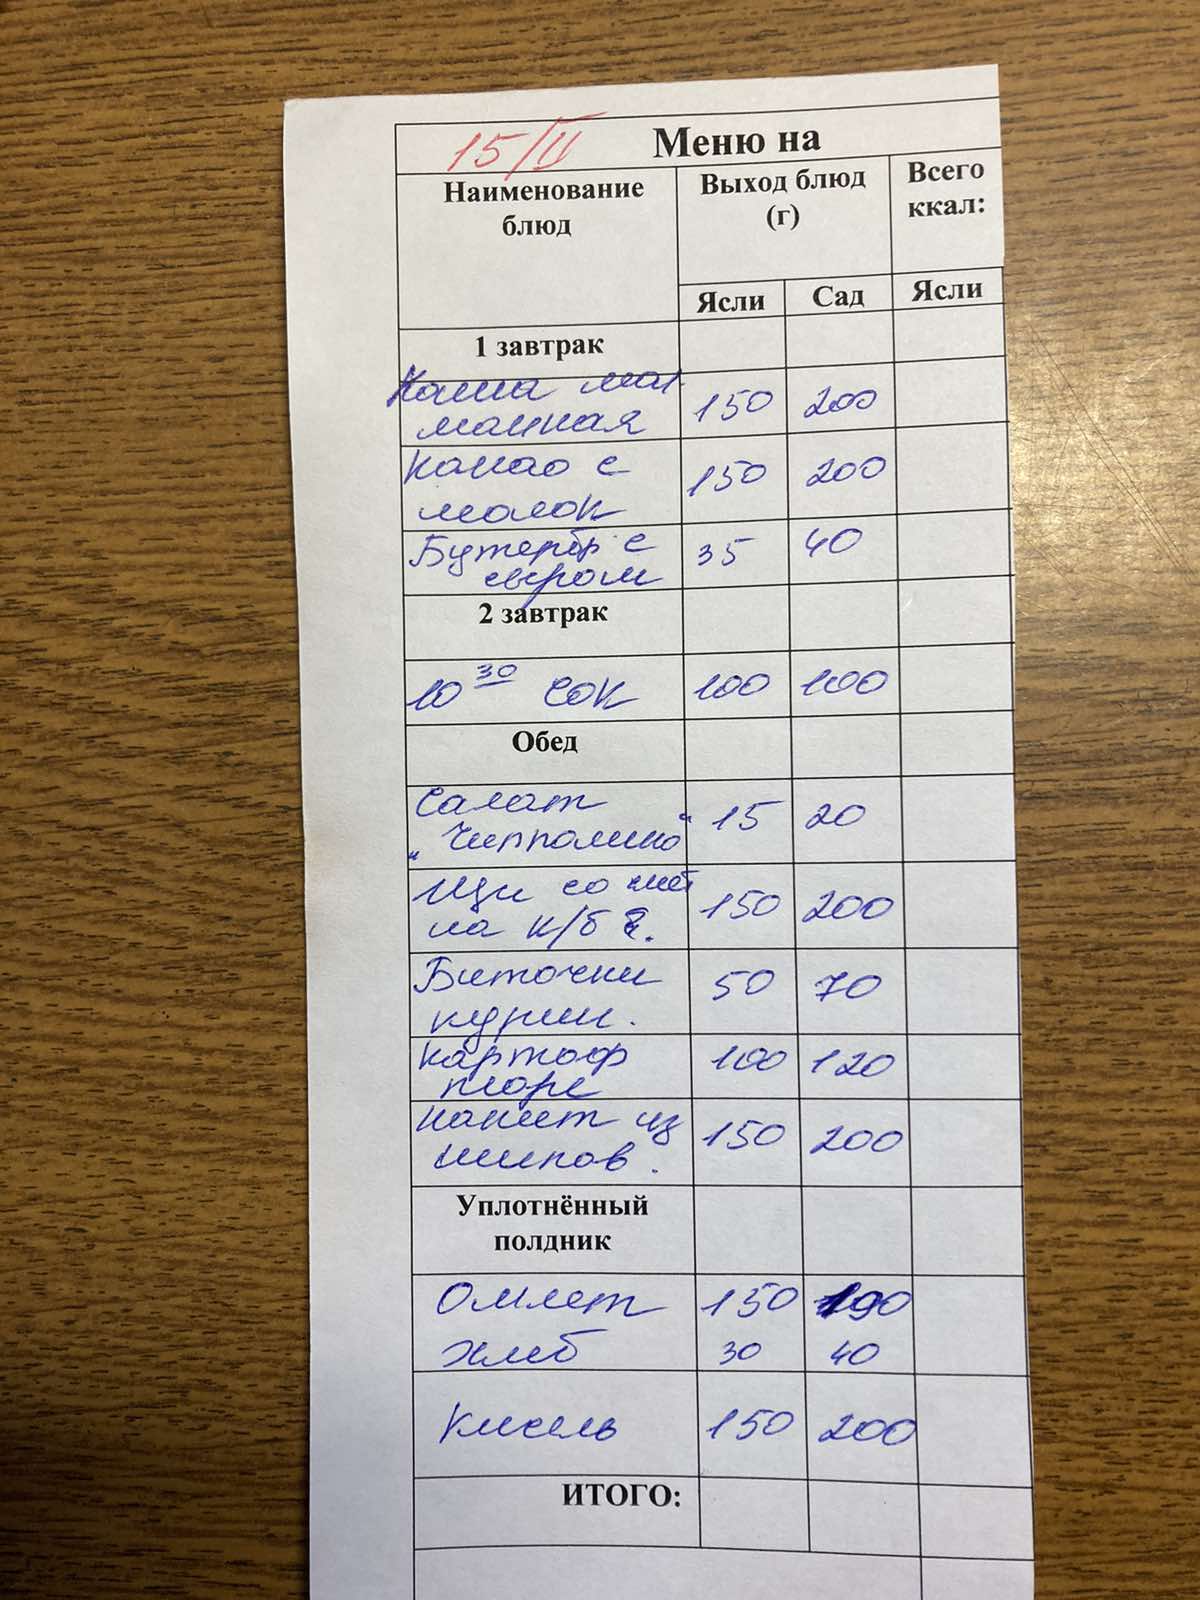 15/II Меню на
Наименование блюд Выход блюд (г) Всего ккал:
Ясли Сад Ясли
1 завтрак
Каша мол
манная 150 200
Какао с
молок 150 200
Бутербр с
сыром 35 40
2 завтрак
10 30 сок 100 100
Обед
Салат
"Чипполино" 15 20
Щи со смет
на к/б 150 200
Биточки
курин. 50 70
картоф
пюре 100 120
напит из
шипов. 150 200
Уплотнённый
полдник
Омлет 150 190
хлеб 30 40
кисель 150 200
ИТОГО: